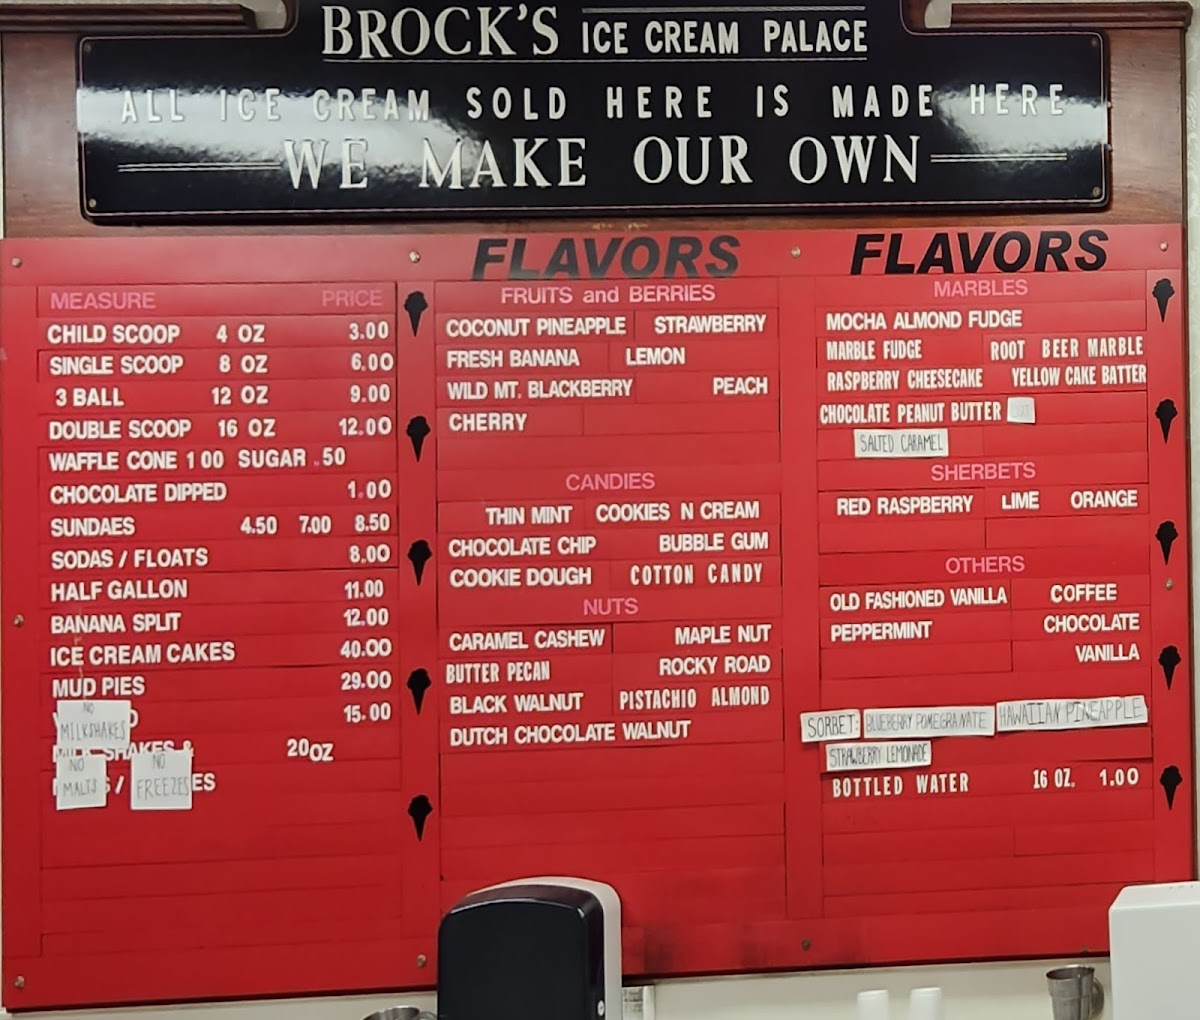 BROCK'S ICE CREAM PALACE
ALL ICE CREAM SOLD HERE IS MADE HERE
WE MAKE OUR OWN
MEASURE PRICE
CHILD SCOOP 4 OZ 3.00
SINGLE SCOOP 8 OZ 6.00
3 BALL 12 OZ 9.00
DOUBLE SCOOP 16 OZ 12.00
WAFFLE CONE 1 00 SUGAR .50
CHOCOLATE DIPPED 1.00
SUNDAES 4.50 7.00 8.50
SODAS / FLOATS 8.00
HALF GALLON 11.00
BANANA SPLIT 12.00
ICE CREAM CAKES 40.00
MUD PIES 29.00
15.00
NO
MILKSHAKES
SHAKES & 20OZ
NO
MALTS /
NO
FREEZES
FLAVORS
FRUITS and BERRIES
COCONUT PINEAPPLE STRAWBERRY
FRESH BANANA LEMON
WILD MT. BLACKBERRY PEACH
CHERRY
CANDIES
THIN MINT COOKIES N CREAM
CHOCOLATE CHIP BUBBLE GUM
COOKIE DOUGH COTTON CANDY
NUTS
CARAMEL CASHEW MAPLE NUT
BUTTER PECAN ROCKY ROAD
BLACK WALNUT PISTACHIO ALMOND
DUTCH CHOCOLATE WALNUT
FLAVORS
MARBLES
MOCHA ALMOND FUDGE
MARBLE FUDGE ROOT BEER MARBLE
RASPBERRY CHEESECAKE YELLOW CAKE BATTER
CHOCOLATE PEANUT BUTTER
SALTED CARAMEL
SHERBETS
RED RASPBERRY LIME ORANGE
OTHERS
OLD FASHIONED VANILLA COFFEE
PEPPERMINT CHOCOLATE
VANILLA
SORBET: BLUEBERRY POMEGRANATE HAWAIIAN PINEAPPLE
STRAWBERRY LEMONADE
BOTTLED WATER 16 OZ. 1.00